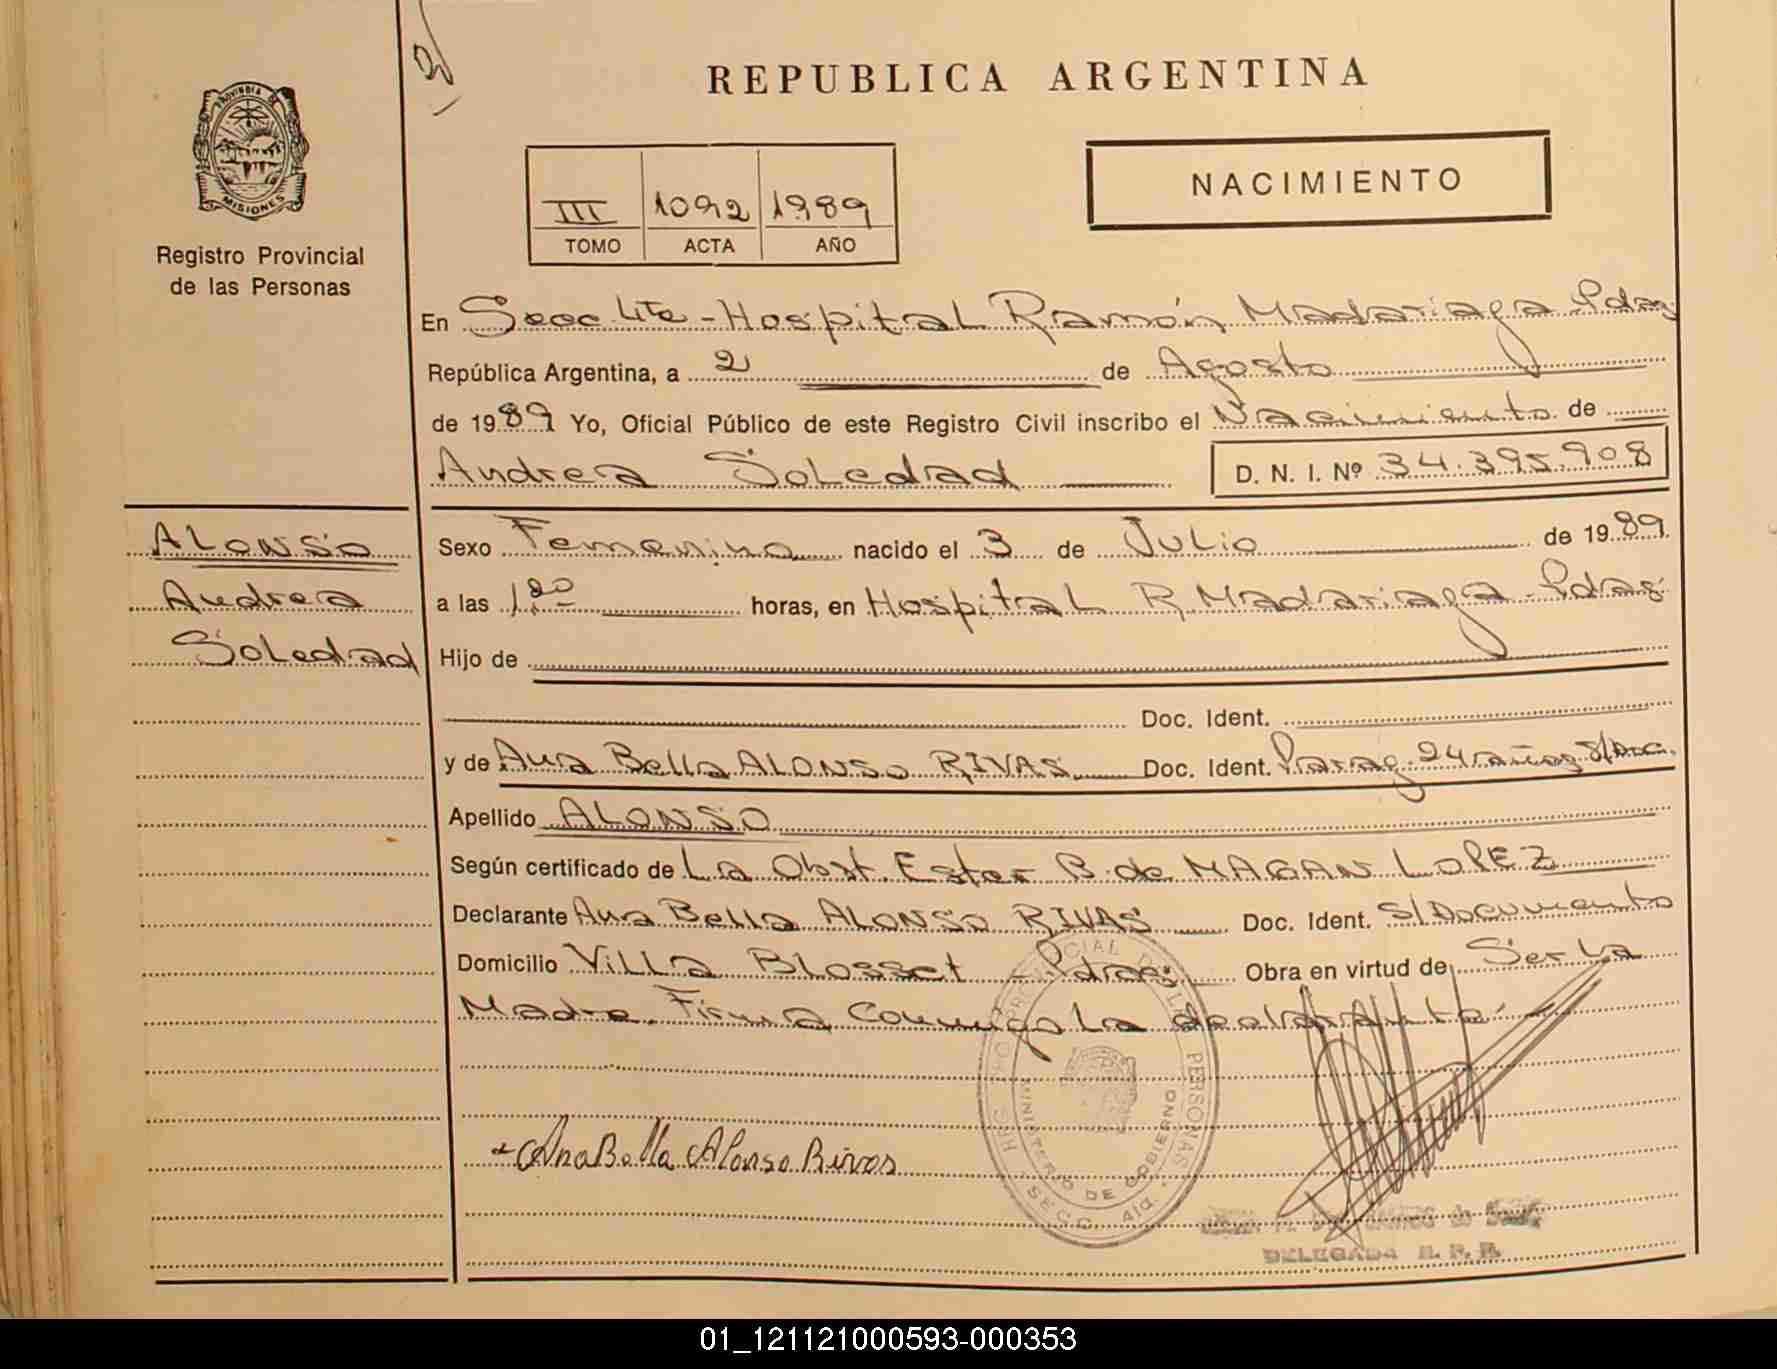 REPUBLICA ARGENTINA
PROVINCIA DE
MISIONES
Registro Provincial
de las Personas
III 1092 1989
TOMO ACTA AÑO
NACIMIENTO
En Secc 4ta - Hospital Ramón Madariaga - Pdas
República Argentina, a 2 de Agosto
de 1989 Yo, Oficial Público de este Registro Civil inscribo el Nacimiento de
Andrea Soledad D. N. I. Nº 34.395.908
ALONSO
Andrea
Soledad
Sexo Femenino nacido el 3 de Julio de 1989
a las 1,20 horas, en Hospital R. Madariaga - Pdas
Hijo de
Doc. Ident.
y de Ana Bella ALONSO RIVAS Doc. Ident. Parag. 24 años S/Doc.
Apellido ALONSO
Según certificado de La Obst. Ester B. de MAGAN LOPEZ
Declarante Ana Bella ALONSO RIVAS Doc. Ident. S/Documento
Domicilio Villa Blosset - Pdas Obra en virtud de Ser la
Madre. Firma Conmigo la declarante.
AnaBella Alonso Rivas
PERSONAS
MINISTERIO DE GOBIERNO
SECC. 4ta.
DELEGADA R. P. P.
01_121121000593-000353